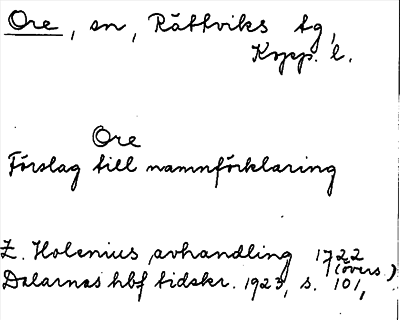 Ore, sn, Rättviks tg,
Kopp. l.
Ore
Förslag till namnförklaring
Z. Holenius avhandling 1722
(övers.)
Dalarnas hbf tidskr. 1923, s. 101,